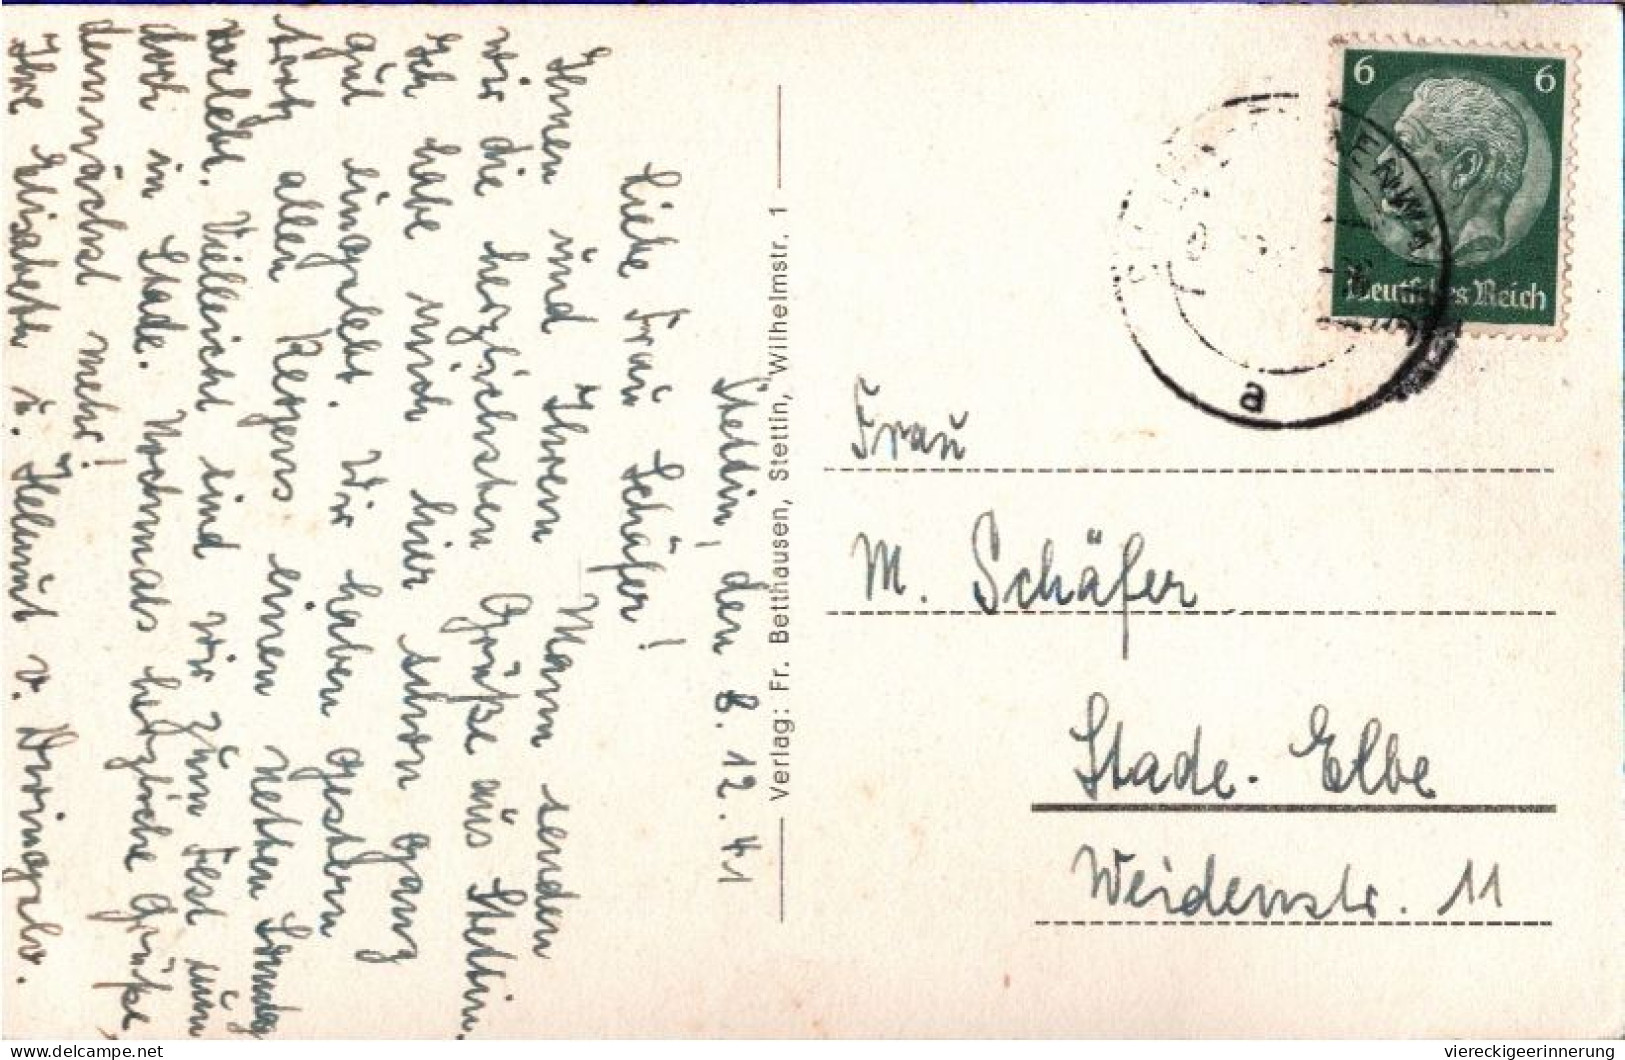 Stettin, den 8.12.41
Liebe Frau Schäfer!
Ihnen und Ihrem Mann senden
wir die herzlichsten Grüße aus Stettin.
Ich habe mich hier schon ganz
gut eingelebt. Wir haben gestern
trotz allen Regens einen netten Sonntag
verlebt. Vielleicht sind wir zum Fest nun
doch in Stade. Nochmals herzliche Grüße,
demnächst mehr!
Ihre Elisabeth u. Helmut v.
Verlag: Fr. Betthausen, Stettin, Wilhelmstr. 1
6 6
Deutsches Reich
a
Frau
M. Schäfer
Stade-Elbe
Weidenstr. 11
viereckigeerinnerung
delcampe.net